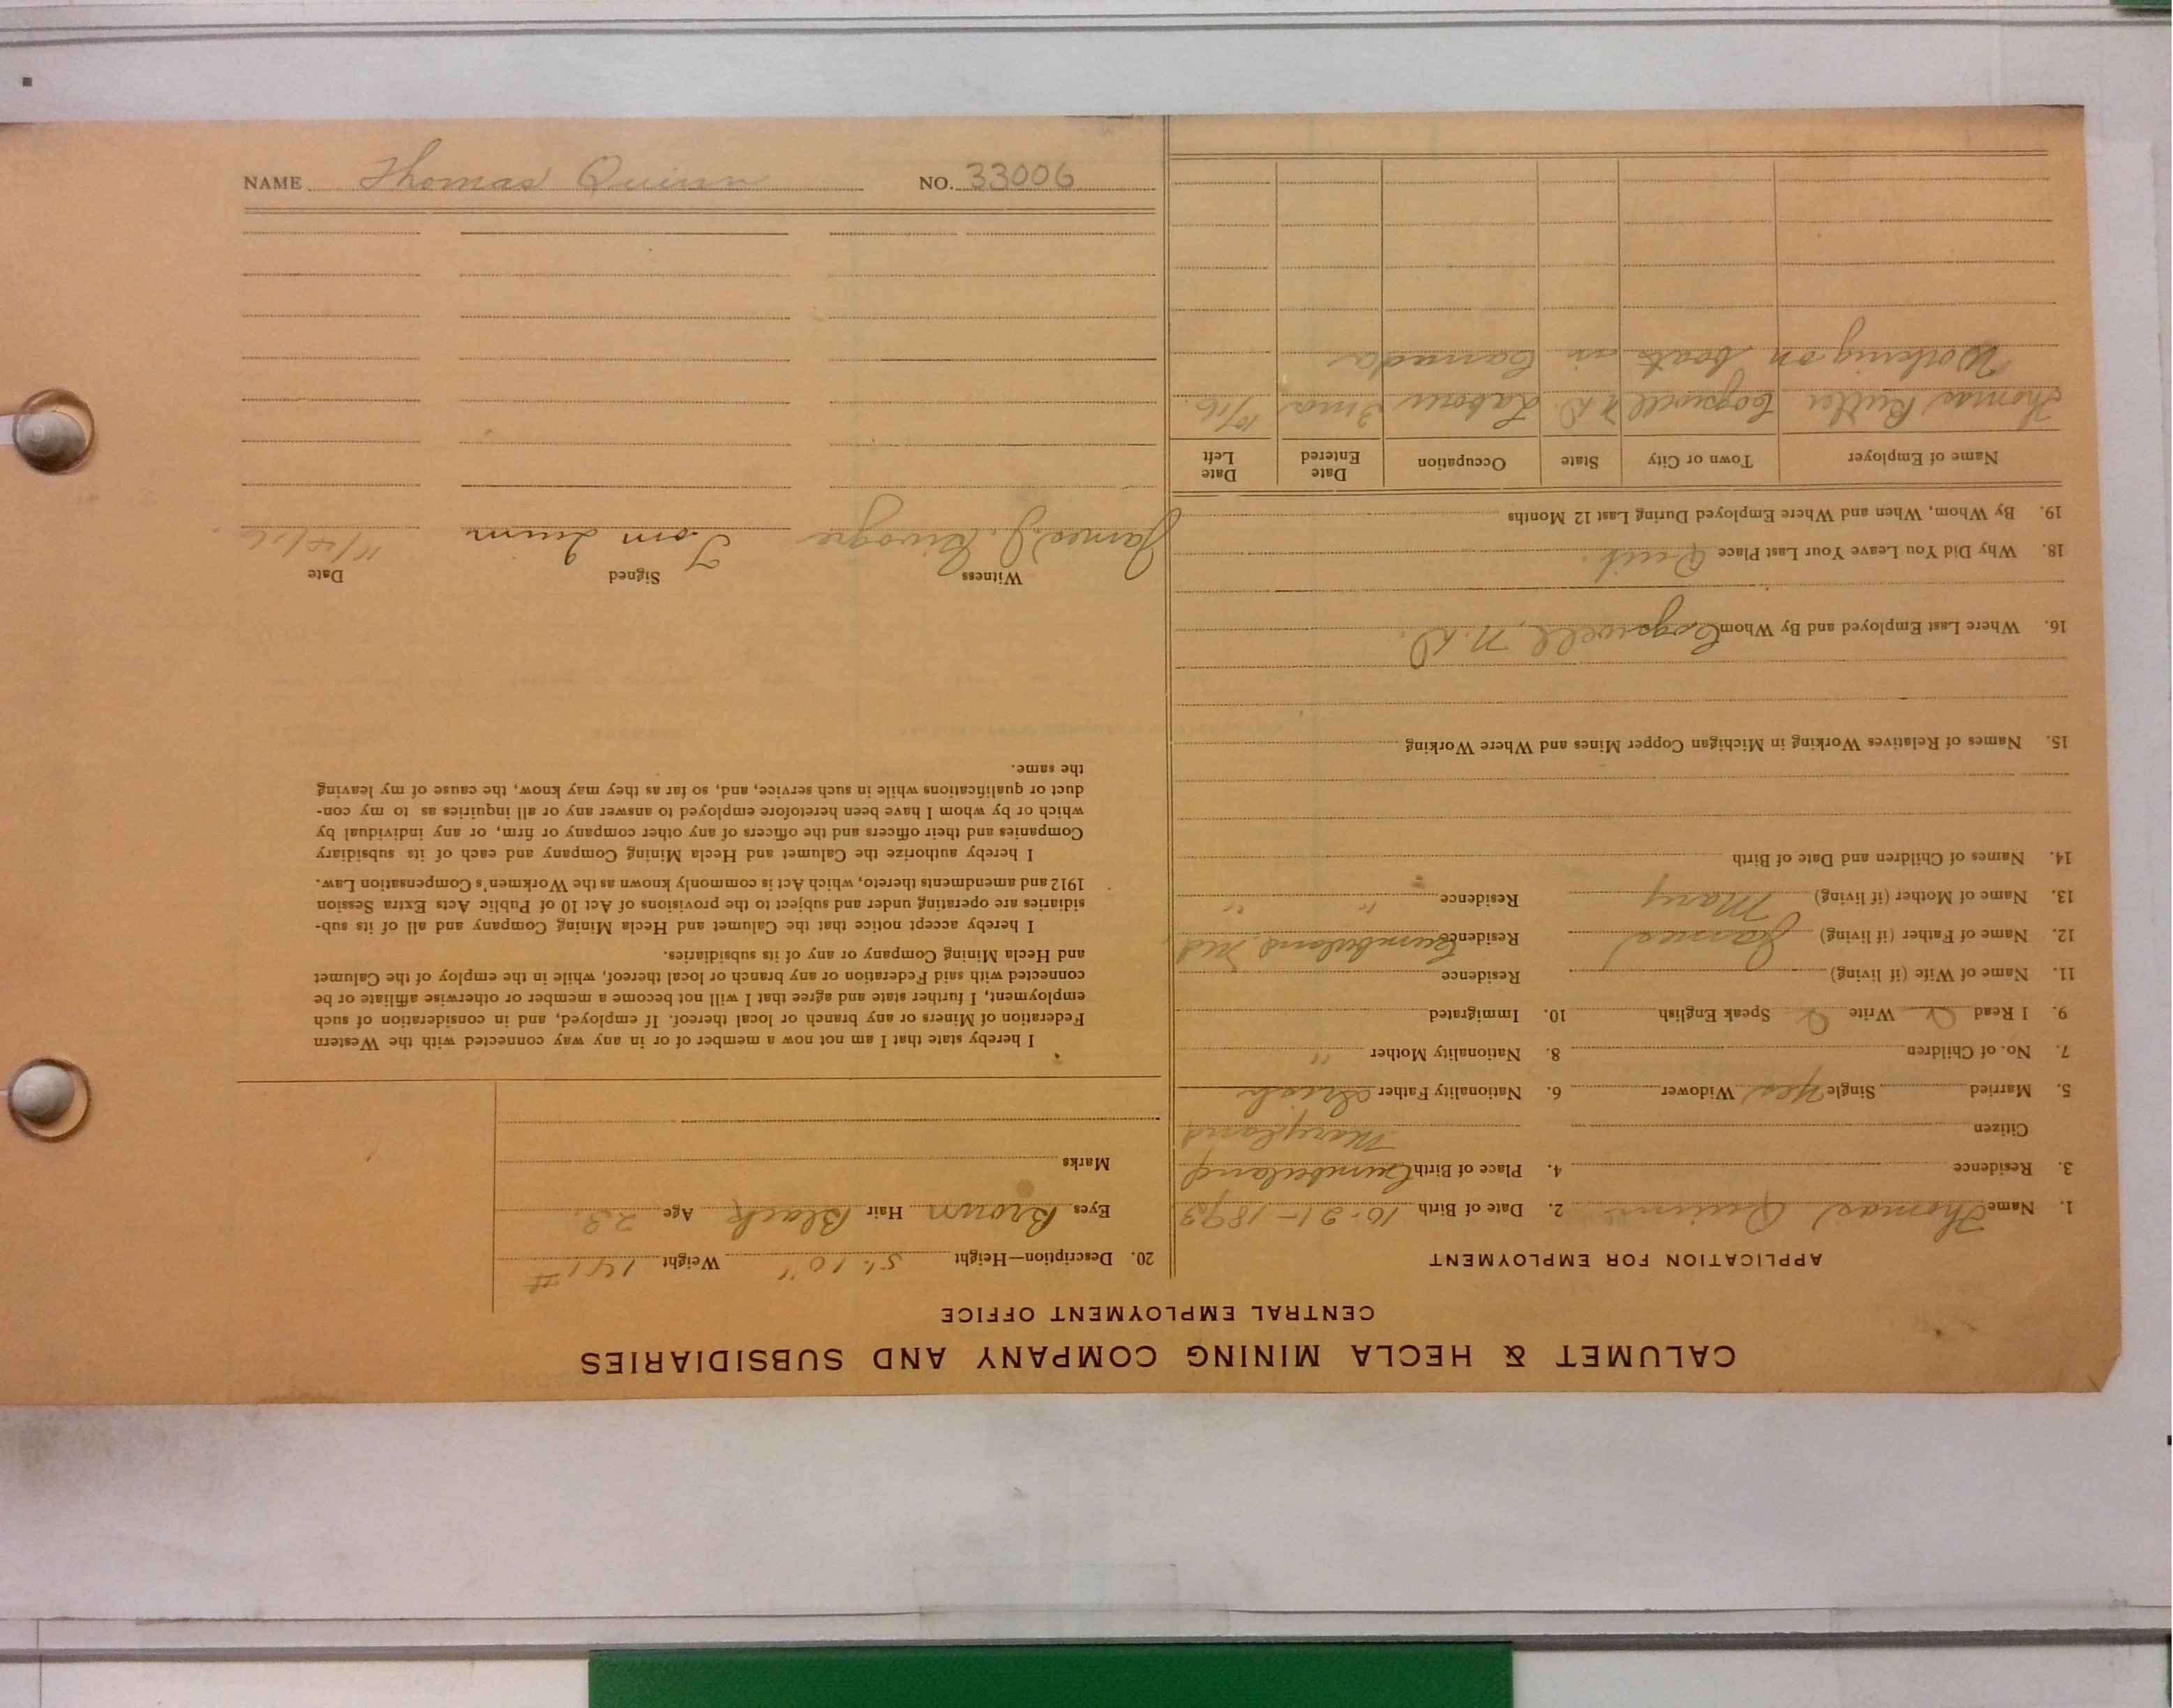 NAME Thomas Quinn NO. 33006
CALUMET & HECLA MINING COMPANY AND SUBSIDIARIES
CENTRAL EMPLOYMENT OFFICE
APPLICATION FOR EMPLOYMENT
1. Name Thomas Quinn 2. Date of Birth 10-21-1893
3. Residence 4. Place of Birth Cumberland
Citizen Maryland
5. Married Single Yes Widower 6. Nationality Father Irish
7. No. of Children 8. Nationality Mother "
9. I Read Write Speak English 10. Immigrated
11. Name of Wife (if living) Residence
12. Name of Father (if living) James Residence Cumberland, Md
13. Name of Mother (if living) Mary Residence " "
14. Names of Children and Date of Birth
15. Names of Relatives Working in Michigan Copper Mines and Where Working
16. Where Last Employed and By Whom Cogswell, N.D.
18. Why Did You Leave Your Last Place Quit.
19. By Whom, When and Where Employed During Last 12 Months
Name of Employer Town or City State Occupation Date Entered Date Left
Thomas Cogswell N.D. Labour 3 mos 10/16.
Working on boats in Canada
20. Description—Height 5'.10" Weight 141#
Eyes Brown Hair Black Age 23.
Marks
I hereby state that I am not now a member of or in any way connected with the Western
Federation of Miners or any branch or local thereof. If employed, and in consideration of such
employment, I further state and agree that I will not become a member or otherwise affiliate or be
connected with said Federation or any branch or local thereof, while in the employ of the Calumet
and Hecla Mining Company or any of its subsidiaries.
I hereby accept notice that the Calumet and Hecla Mining Company and all of its sub-
sidiaries are operating under and subject to the provisions of Act 10 of Public Acts Extra Session
1912 and amendments thereto, which Act is commonly known as the Workmen's Compensation Law.
I hereby authorize the Calumet and Hecla Mining Company and each of its subsidiary
Companies and their officers and the officers of any other company or firm, or any individual by
which or by whom I have been heretofore employed to answer any or all inquiries as to my con-
duct or qualifications while in such service, and, so far as they may know, the cause of my leaving
the same.
Witness Signed Date
James J. Tom Quinn 11/4/16.